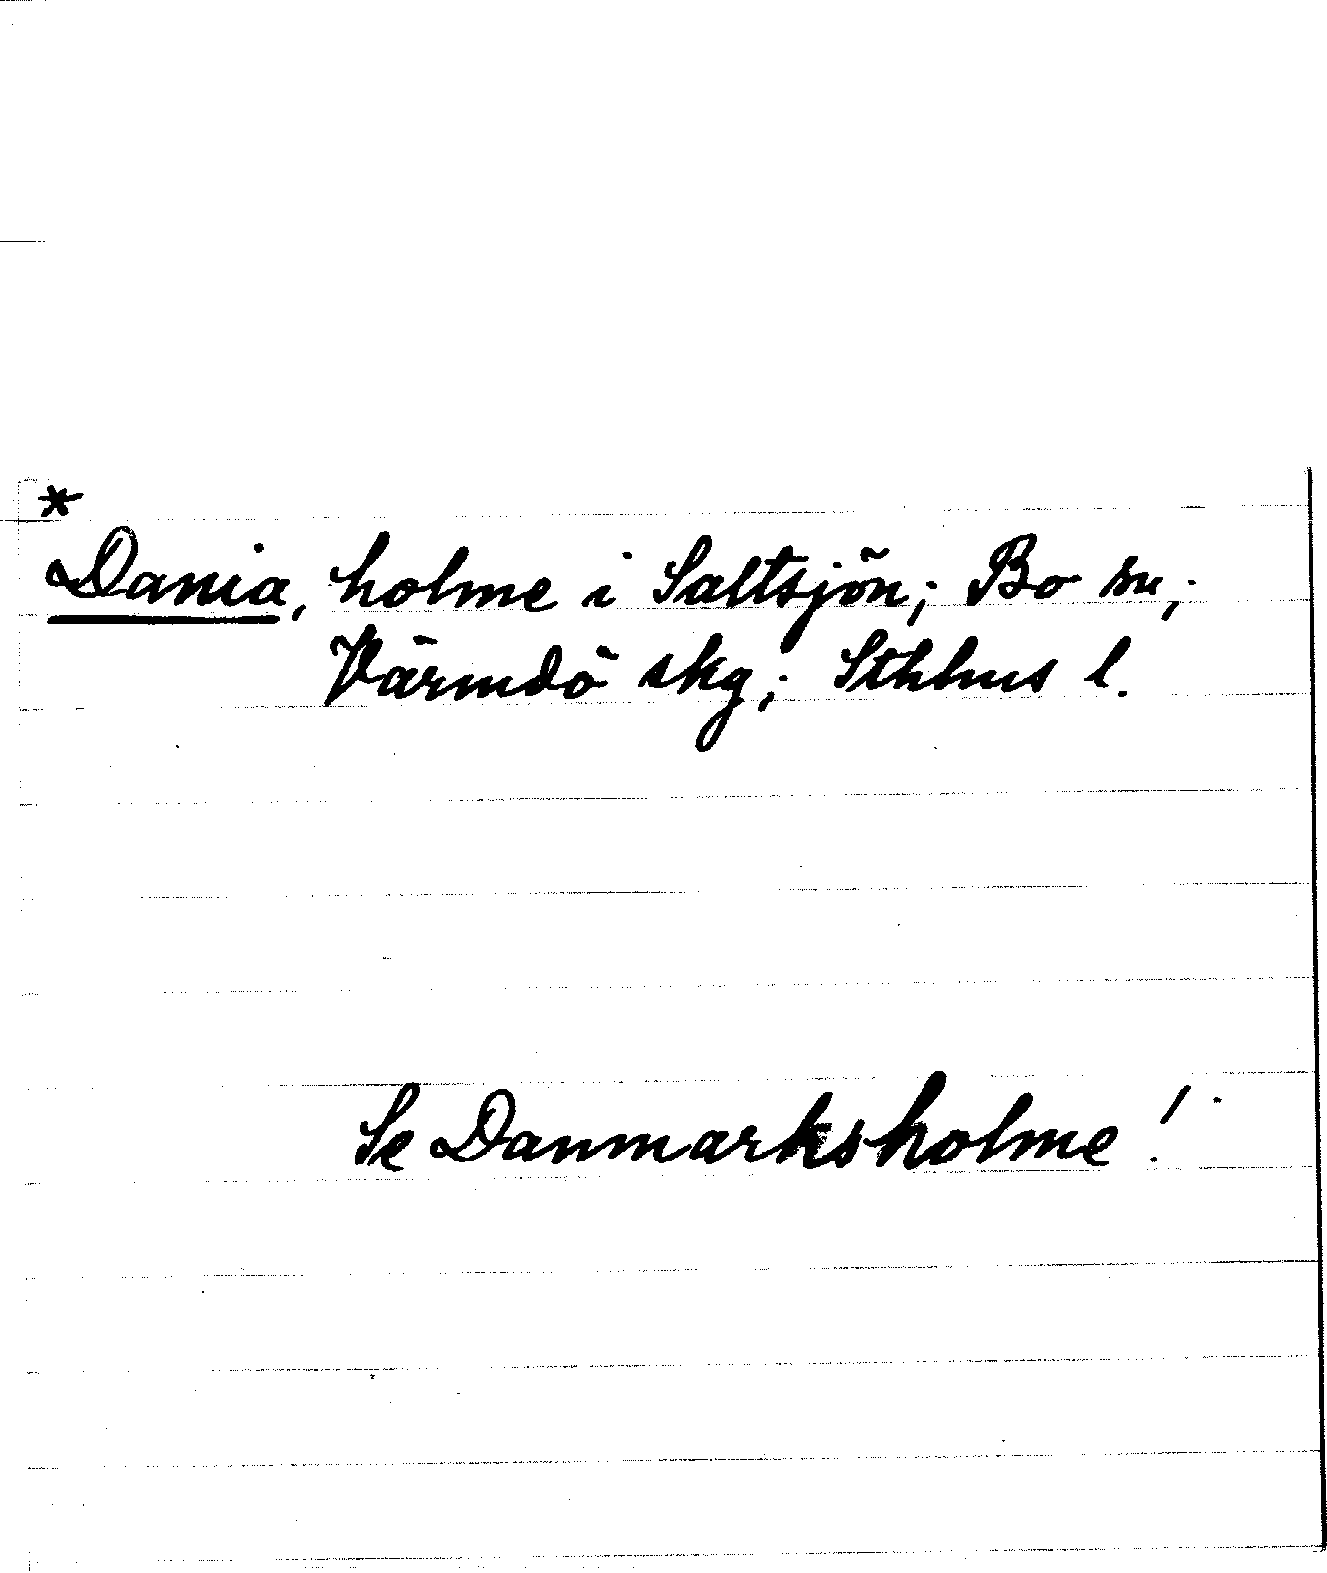 *
Dania, holme i Saltsjön; Bo sn;
Värmdö skg; Sthlms l.
Se Danmarksholme!